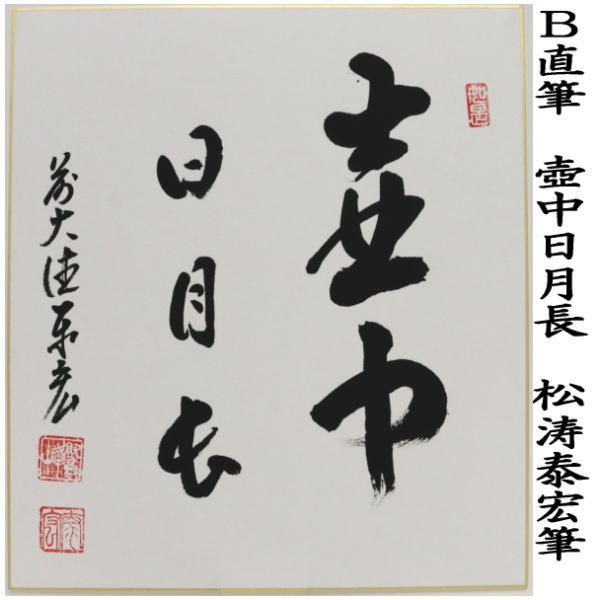 B直筆 壺中日月長 松涛泰宏筆
壺中
日月長
前大徳泰宏